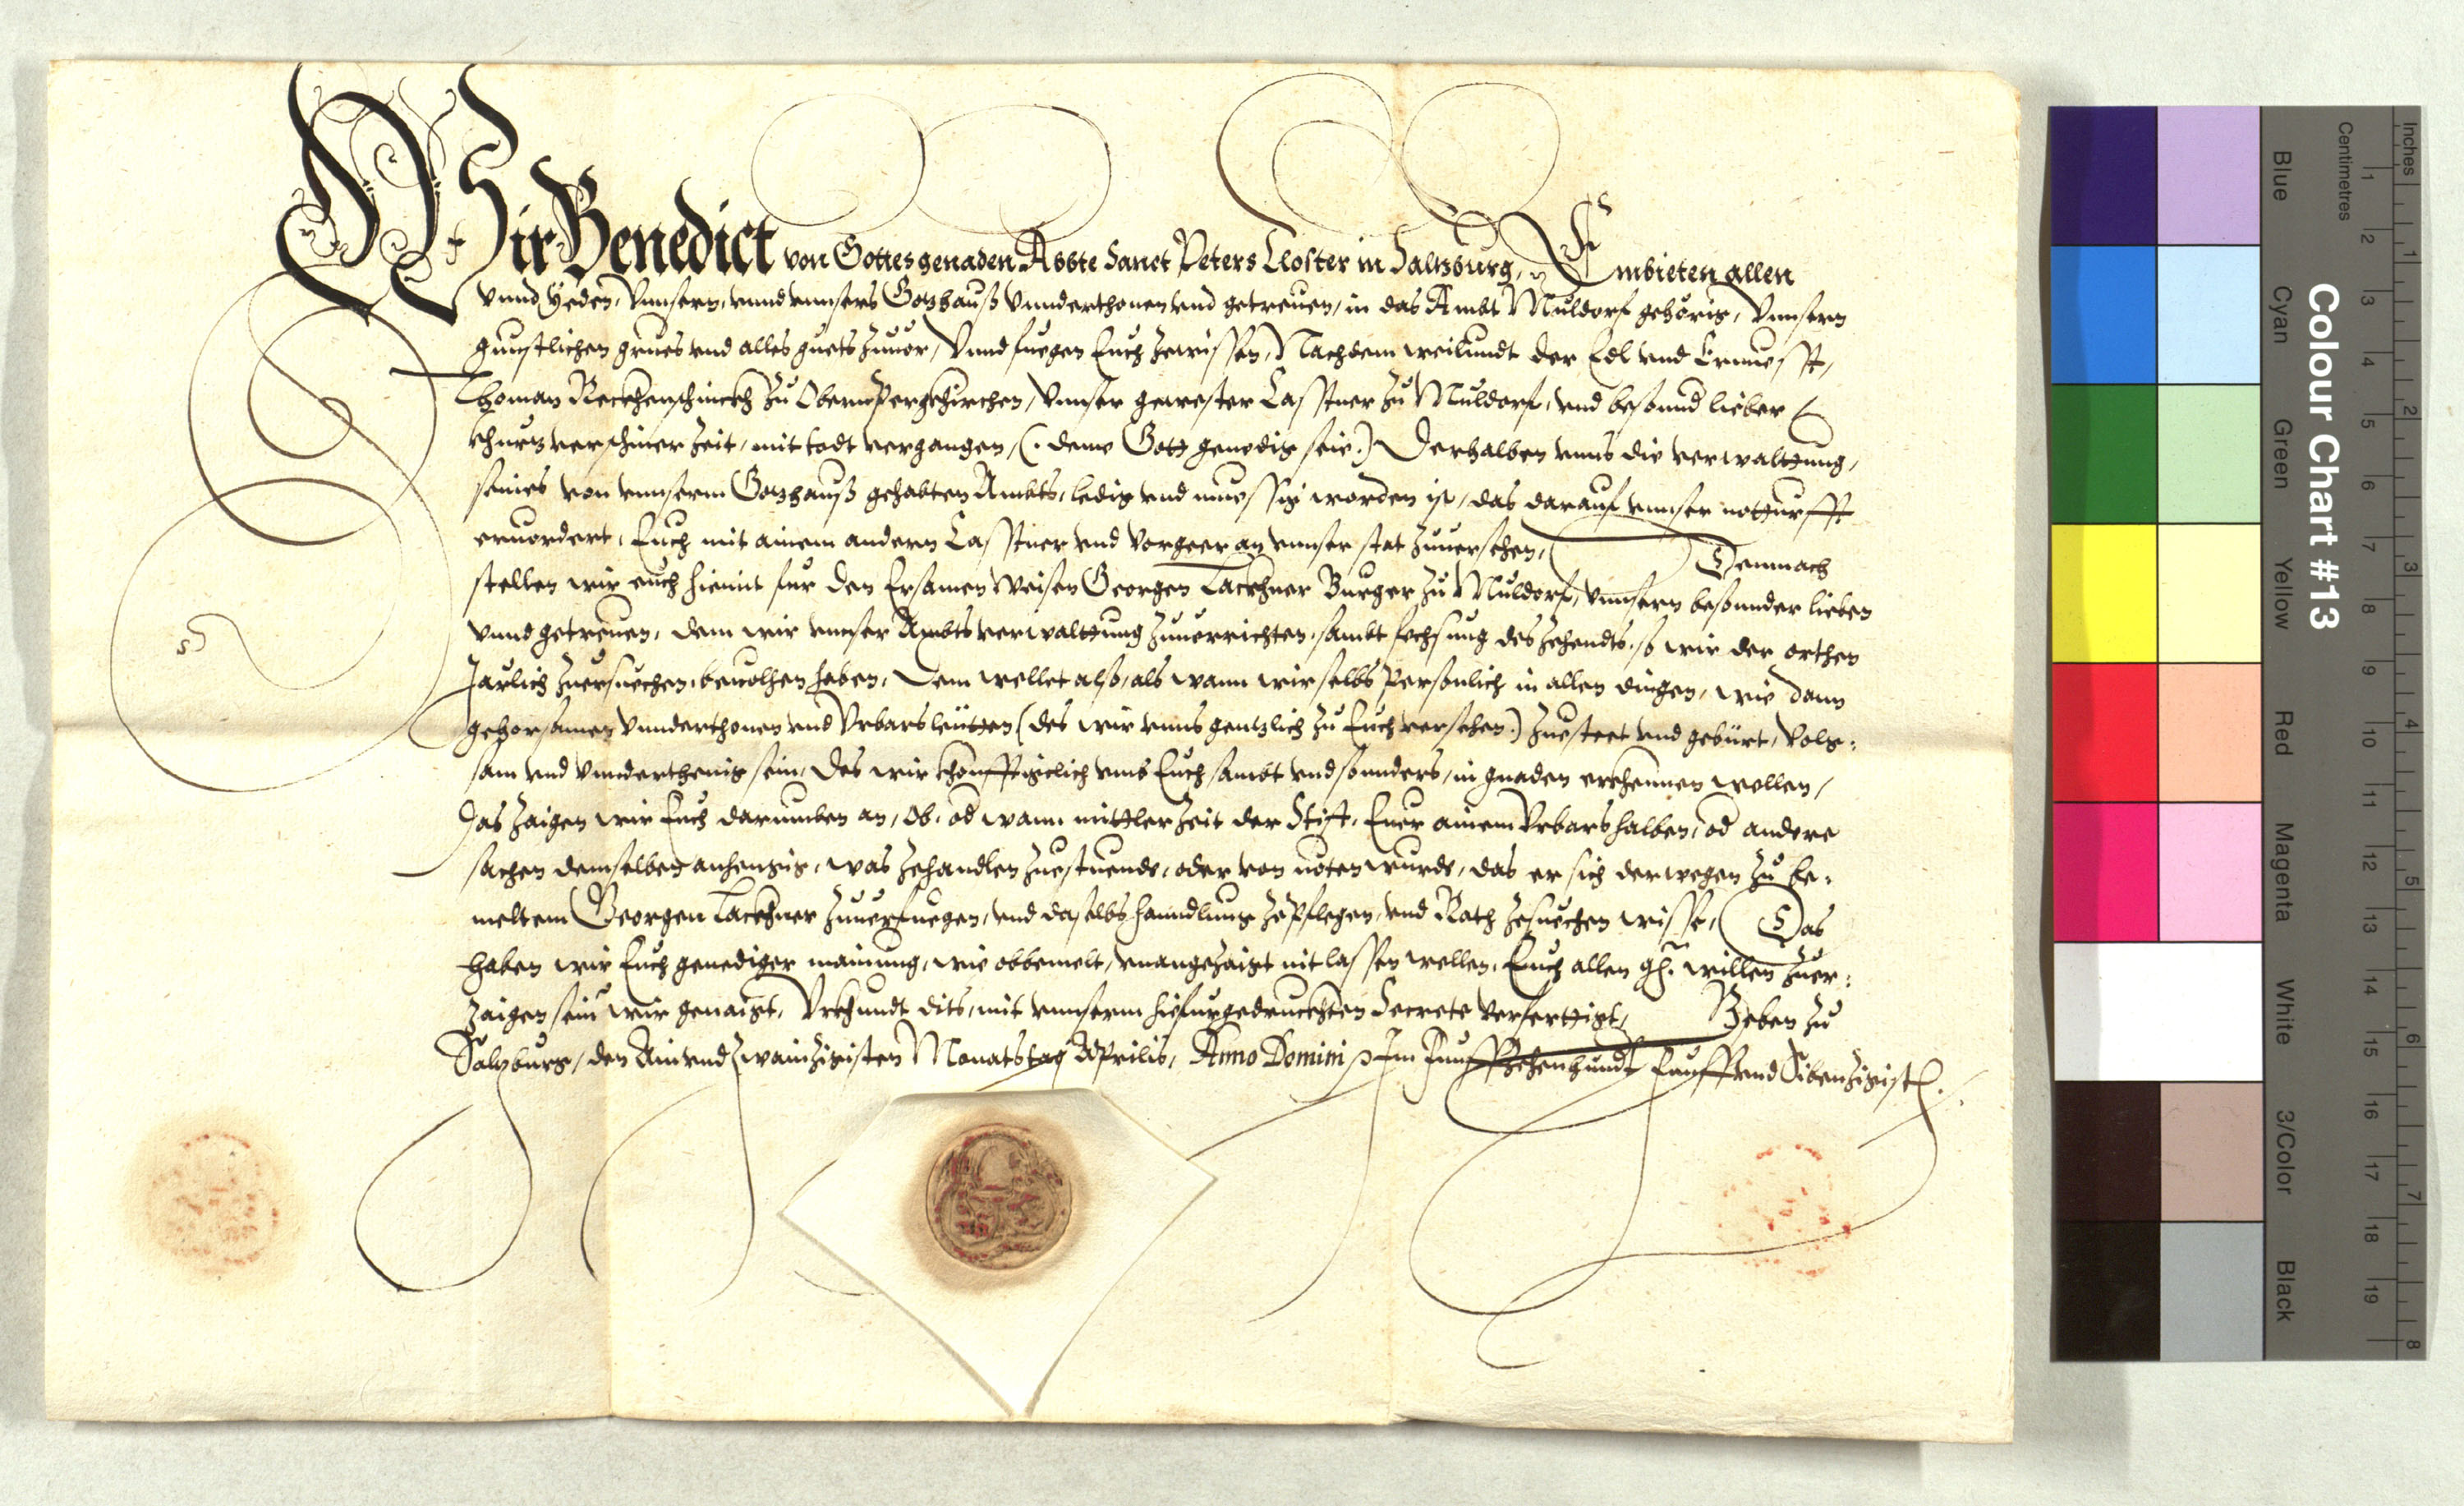 Wir Benedict von Gottes genaden Abbte Sanct Peters Closter in Saltzburg, Embieten allen
vnnd Yeden, Vnnsern, vnnd vnnsers Gotzhauß Vnnderthonen vnd getreuen, in das Ambt Müldorf gehörig, Vnnsern
gunstlichen grues vnd alles guets zuuor, Vnnd fuegen Euch zewissen, Nachdem weilundt der Edl vnd Ernuesst,
Thoman Reckhenschinckh zů Obernpergkhirchen, Vnnser gewester Casstner zů Müldorf, vnd besonnd lieber
khurtz verschiner zeit, mit todt vergangen, (: deme Gott genedig seie :) Derhalben vnns die verwaltung,
seines von vnnserm Gotzhauß gehabten Ambts, ledig vnd muessig worden ist, das darauf vnnser notturfft
eruordert, Euch mit ainem andern Casstner vnd Vorgeer an vnnser stat zuuersehen, Demnach
stellen wir euch hiemit für den Ersamen Weisen Georgen Lackhner Burger zů Müldorf, Vnnsern besonnder lieben
vnnd getreuen, dem wir vnnser Ambtsverwalttung zuuerrichten, sambt fechsung des zehendts, so wir der orthen
Järlich zuersuechen, beuolhen haben, Dem wellet also, als wann wir selbs Persönlich in allen dingen, wie dann
gehorsamen Vnnderthonen vnd Vrbarsleütten (des wir vnns gentzlich zů Euch versehen :) zuesteet vnd gebürt, Volg:
sam vnd Vnnderthenig sein, Des wir khonfftigclich vmb Euch sambt vnd sonnders, in gnaden erkhennen wollen,
Das zaigen wir Euch darumben an, Ob, od wann mittler zeit der Stifft, Euer ainem Vrbars halben, od andere
sachen demselben anhengig, was zehandlen zuestuende, oder von nöten wurde, das er sich derwegen zů be:
meltem Georgen Lackhner zuuerfuegen, vnd daselbs hanndlung zepflegen, vnd Rath zesuechen wisse, Das
haben wir Euch genediger mainung, wie obbemelt, vnangezaigt nit lassen wellen, Euch allen gl. willen zuer:
zaigen sein wir genaigt, Vrkhundt dits, mit vnnserm hiefurgedruckhten Secrete verferttigt, Geben zů
Saltzburg, den Ain vnd zwainzigisten Monatstag Aprilis, Anno Domini Im Funffzehenhundt Funff vnd Sibenzigist.
Colour Chart #13
Blue
Cyan
Green
Yellow
Red
Magenta
White
3/Color
Black
Centimetres
1 2 3 4 5 6 7 8 9 10 11 12 13 14 15 16 17 18 19
Inches
1 2 3 4 5 6 7 8